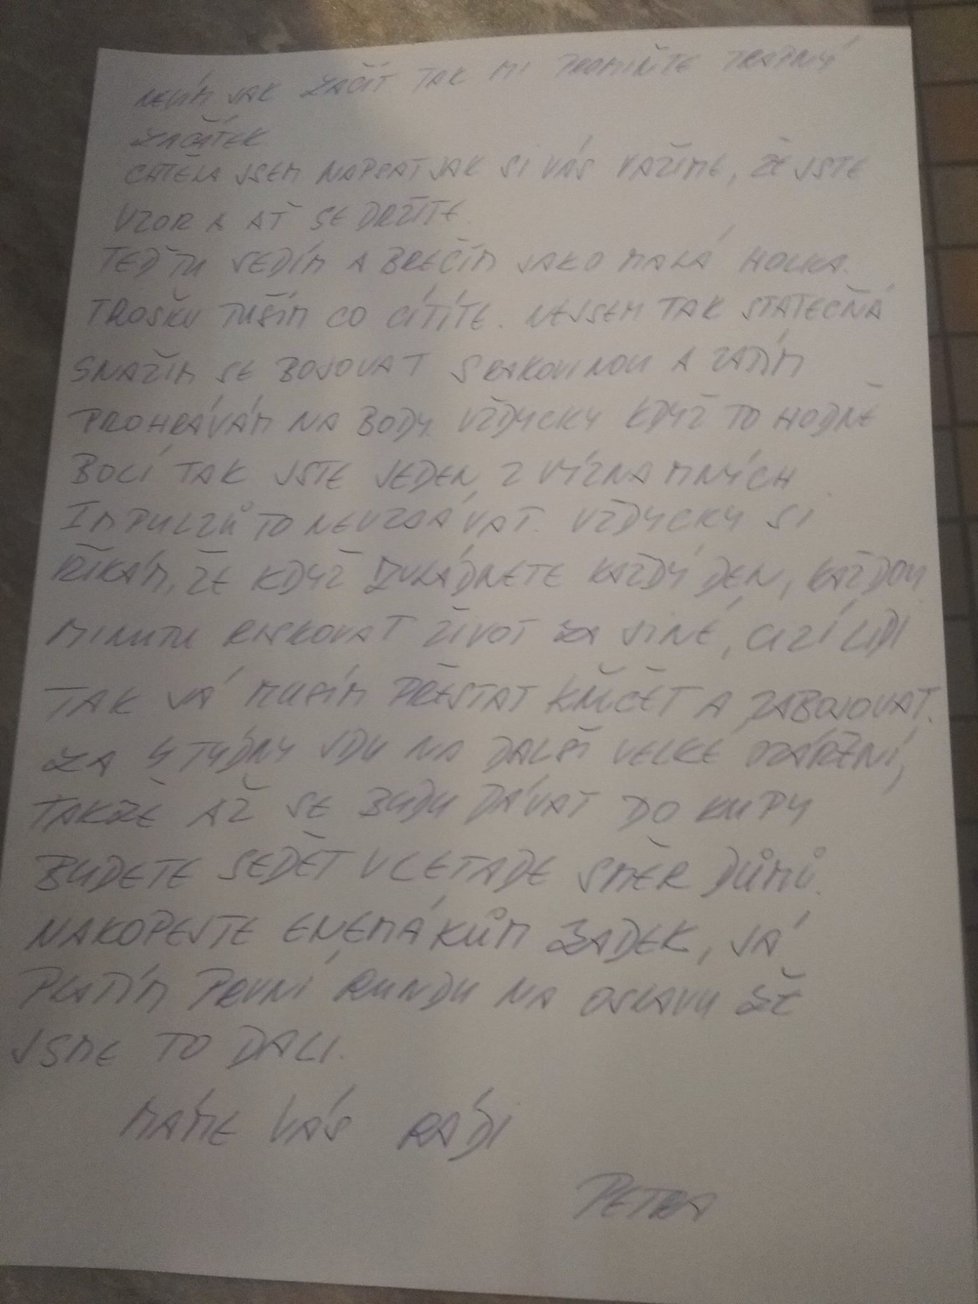 NEVÍM JAK ZAČÍT TAK MI PROMIŇTE TRAPNÝ
ZAČÁTEK
CHTĚLA JSEM NAPSAT JAK SI VÁS VÁŽÍME, ŽE JSTE
VZOR A AŤ SE DRŽÍTE.
TEĎ TU SEDÍM A BREČÍM JAKO MALÁ HOLKA.
TROŠKU TUŠÍM CO CÍTÍTE. NEJSEM TAK STATEČNÁ
SNAŽÍM SE BOJOVAT S RAKOVINOU A ZATÍM
PROHRÁVÁM NA BODY VŽDYCKY KDYŽ TO HODNĚ
BOLÍ TAK JSTE JEDEN Z VÍZNAMNÝCH
IMPULZŮ TO NEVZDÁVAT. VŽDYCKY SI
ŘÍKÁM, ŽE KDYŽ DOKÁDNETE KAŽDÝ DEN, KAŽDOU
MINUTU RISKOVAT ŽIVOT ZA JINÉ, CIZÍ LIDI
TAK JÁ MUSÍM PŘESTAT KŇUČET A ZABOJOVAT.
ZA 4 TÝDNY JDU NA DALŠÍ VELKÉ OZÁŘENÍ,
TAKŽE AŽ SE BUDU DÁVAT DO KUPY
BUDETE SEDĚT V LETADE SMĚR DŮMŮ.
NAKOPEJTE ENEMÁKŮM ZADEK, JÁ
PLATÍM PRVNÍ RUNDU NA OSLAVU ŽE
JSME TO DALI.
MÁME VÁS RÁDI
PETRA